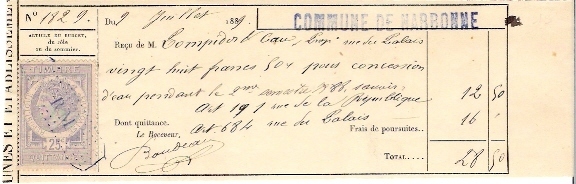 N° 1829. Du 9 Juillet 1889. COMMUNE DE NARBONNE
ARTICLE DU BUDGET,
du rôle
ou du sommier.
Reçu de M. rue du Palais
vingt huit francs 50 c pour concession
d'eau pendant le 2me semestre 1888, savoir
Art 191 rue de la République 12 50
Dont quittance. Art 684 rue du Palais 16 "
Le Receveur, Frais de poursuites..
TOTAL.... 28 50
25
UNES ET ÉTABLISSEMEN